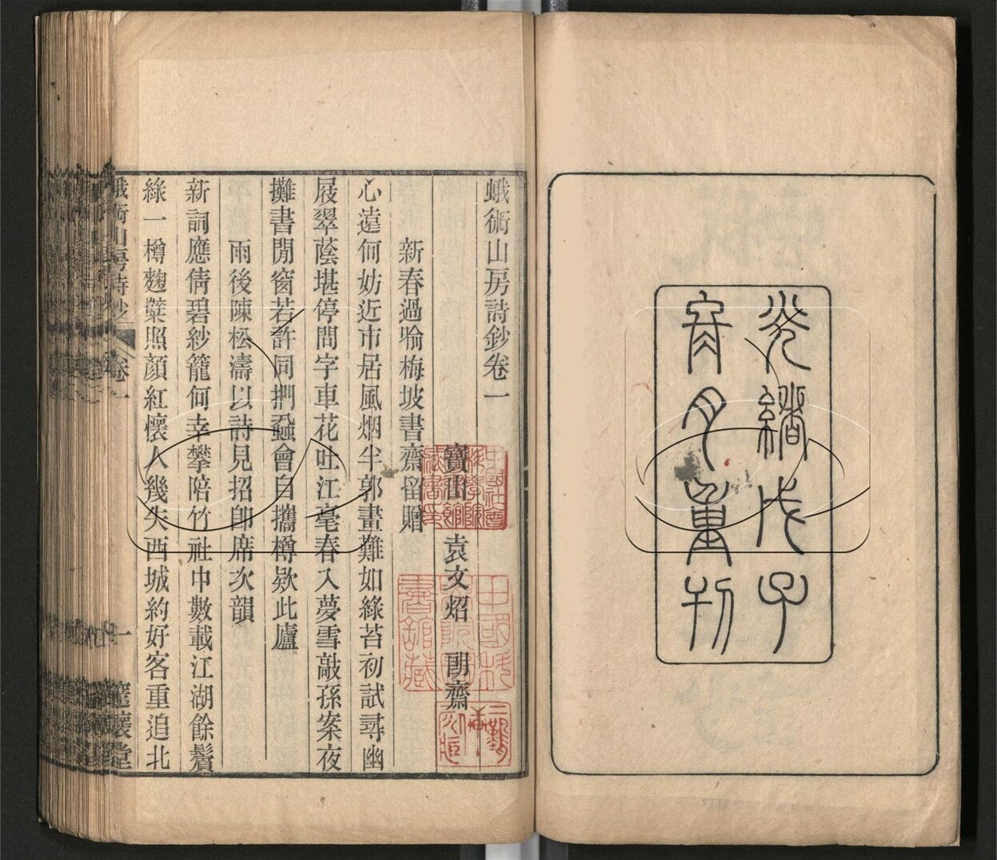 光緒戊子
月刊
蛾術山房詩鈔卷一
寶山 袁文炤 朙齋
新春過喻梅坡書齋留贈
心遠何妨近市居風烟半郭畫難如綠苔初試尋幽
屐翠蔭堪停問字車花吐江毫春入夢雪敲孫案夜
攤書閒窗若許同捫蝨會自攜樽欵此廬
雨後陳松濤以詩見招卽席次韻
新詞應倩碧紗籠何幸攀陪竹社中數載江湖餘鬢
綠一樽麴櫱照顏紅懷人幾失西城約好客重追北
蛾術山房詩鈔 卷一 一 懷堂